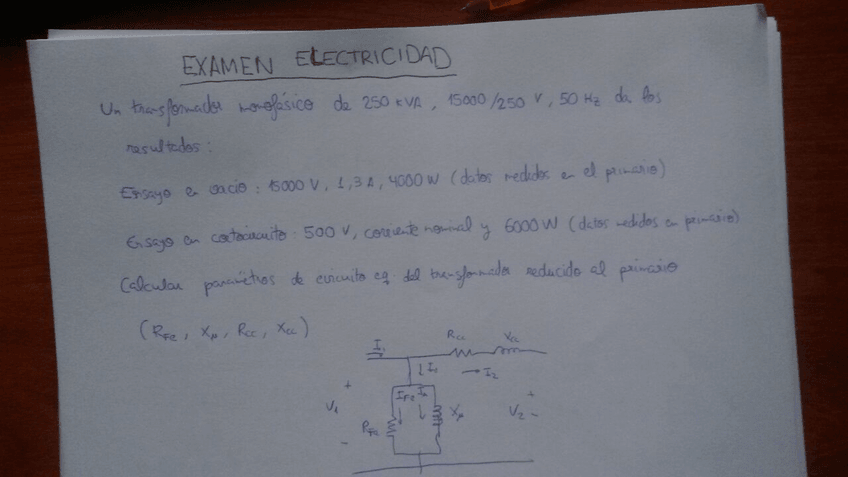 EXAMEN ELECTRICIDAD
Un transformador monofásico de 250 kVA, 15000/250 V, 50 Hz da los
resultados:
Ensayo en vacio: 15000 V, 1,3 A, 4000 W (datos medidos en el primario)
Ensayo en cortocircuito: 500 V, corriente nominal y 6000 W (datos medidos en primario)
Calcular parámetros de circuito eq. del transformador reducido al primario
(RFe, Xμ, Rcc, Xcc)
Rcc Xcc
I1
I1 I2
IFe Iμ
V1 RFe Xμ V2